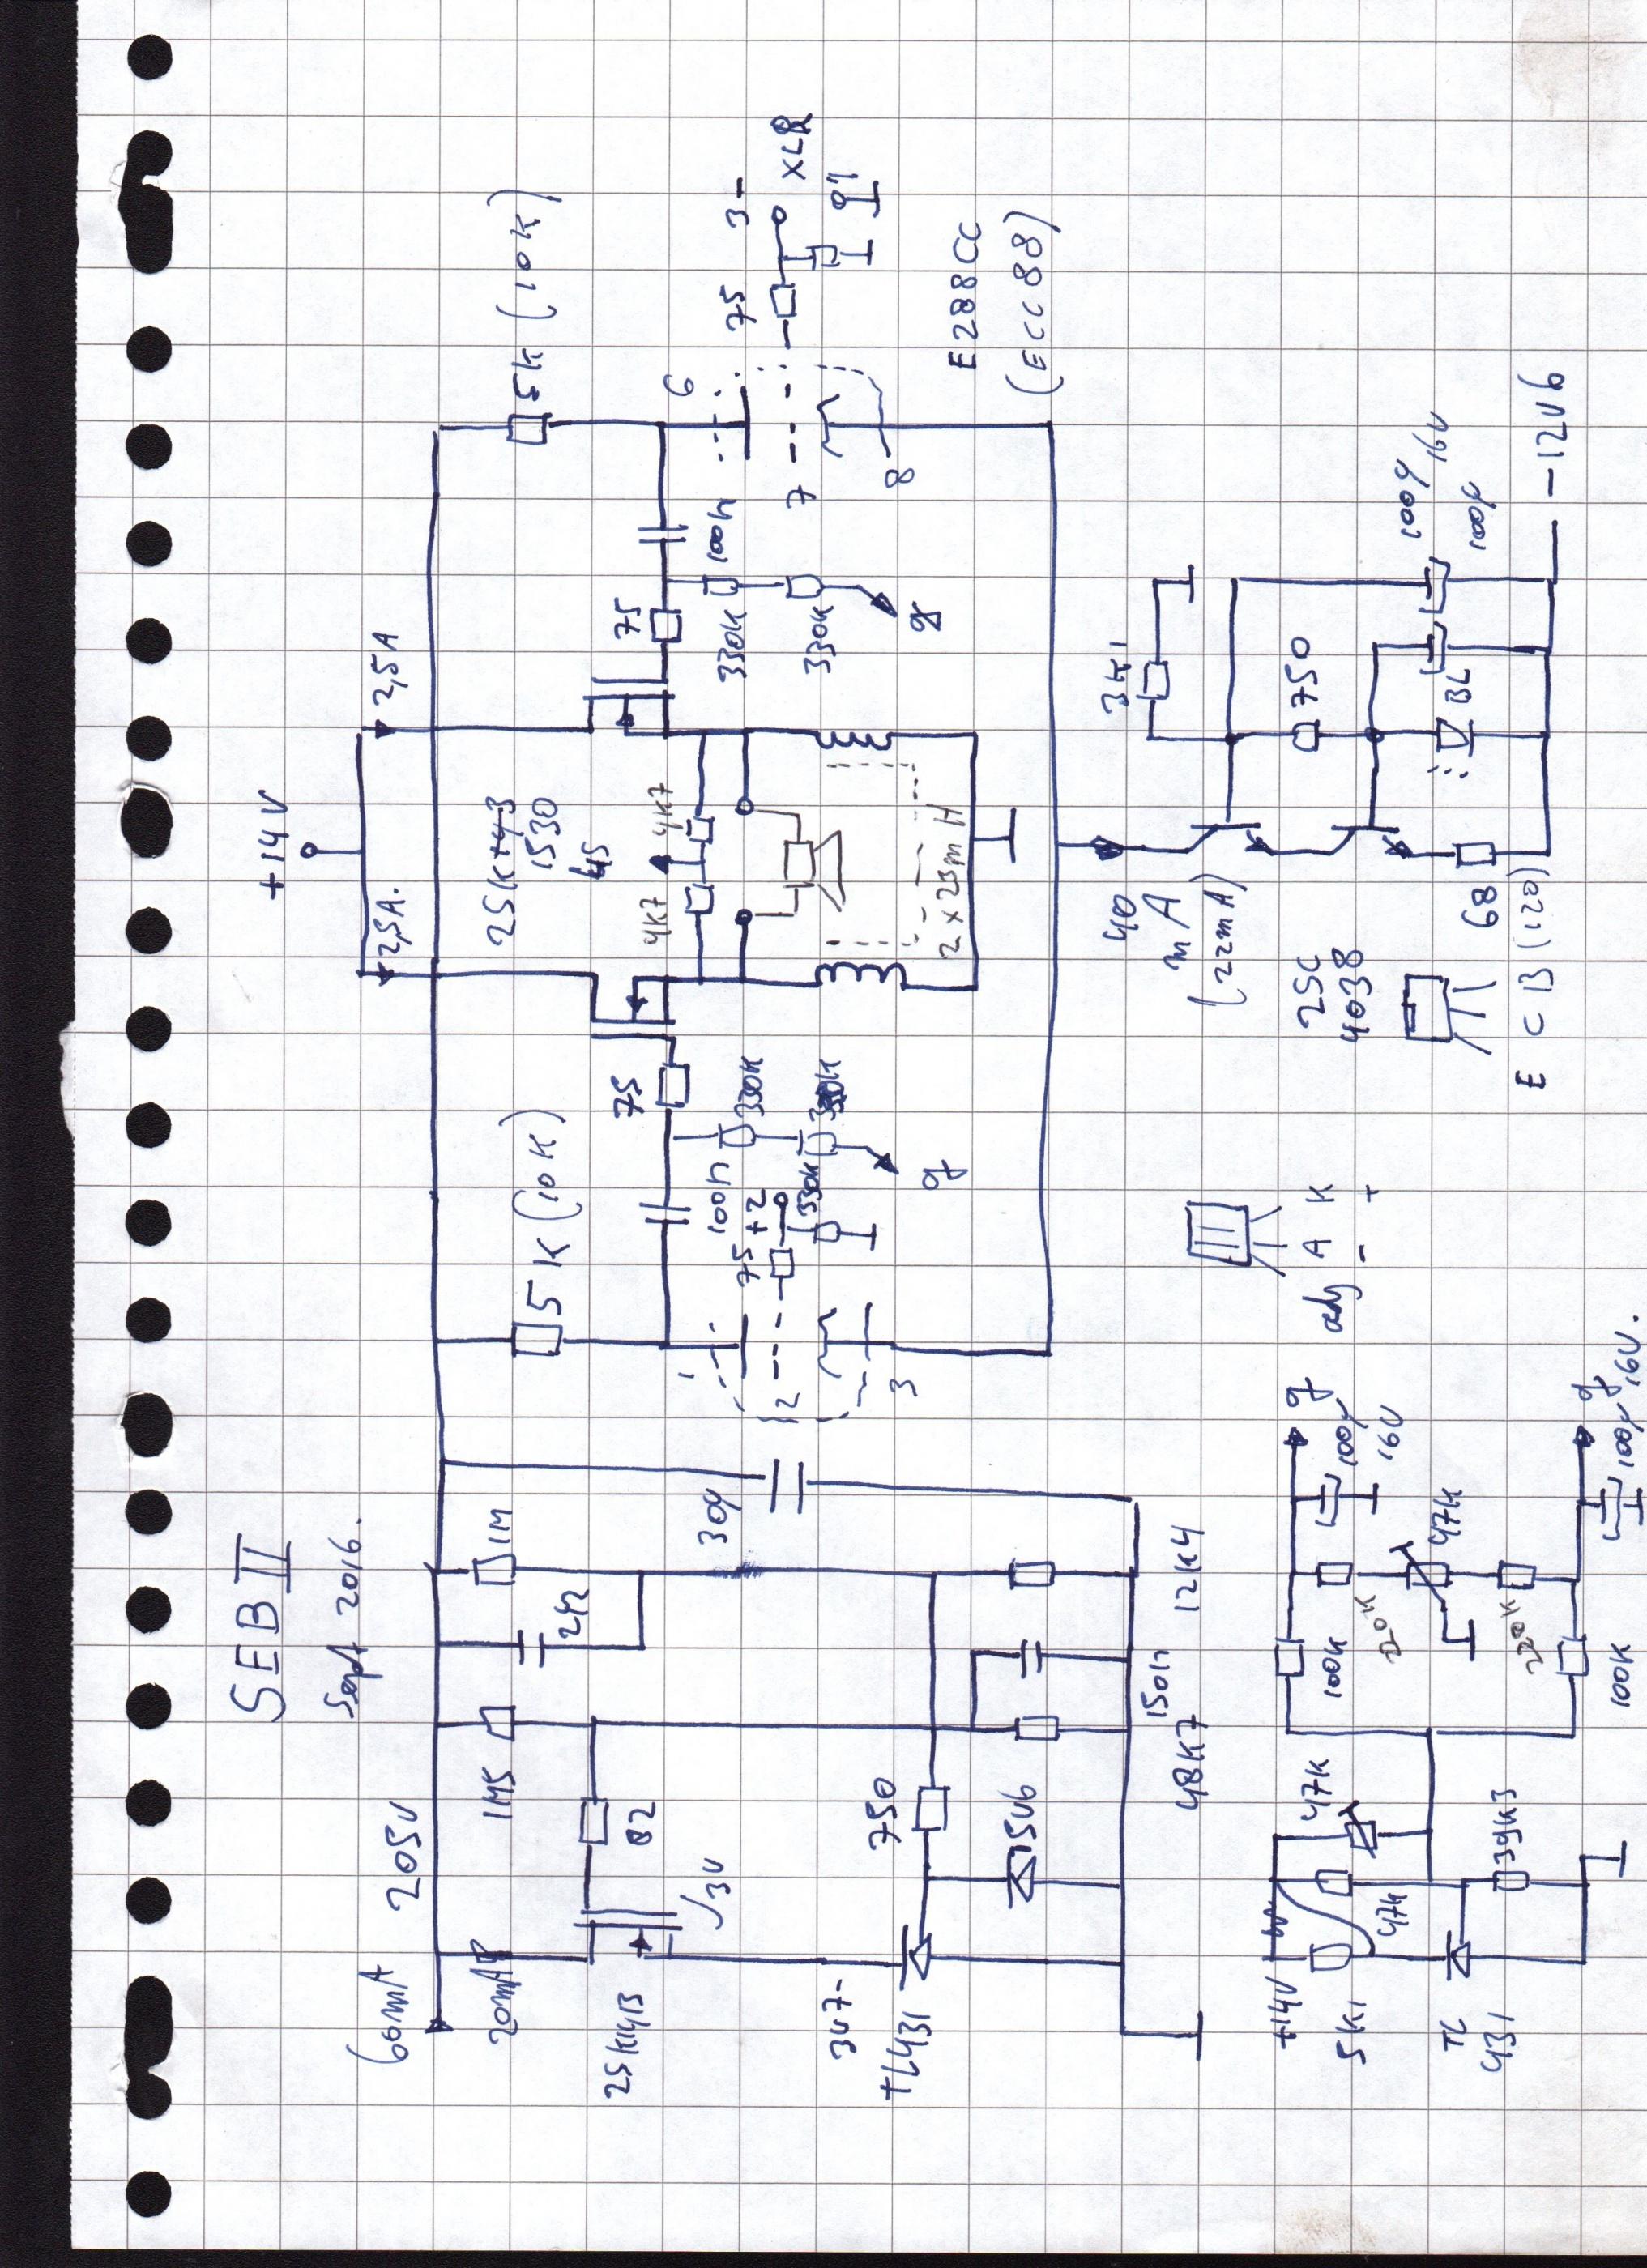 SEB II
Sept 2016.
+14V
2,5A.
2,5A
60mA
205V
20mA
1M5
1M
2n2
82
2SK1413
3V
3V7-
TL431
750
15V6
30µ
150n
48K7
12K4
5K (10K)
5K (10K)
1
2
3
75
+2
100n
330K
330K
g
75
2SK
1530
4K7
4K7
2x25mH
75
100n
330K
330K
g
6
7
8
75
3-
XLR
E288CC
(ECC88)
40
mA
(22mA)
3K1
750
BL
100µ
16V
100µ
-12V6
68
(120)
2SC
4038
E C B
adj A K
- +
+14V
5K1
47K
47K
TL
431
39K3
100K
100K
220K
47K
g
100µ
16V
g
100µ
16V.